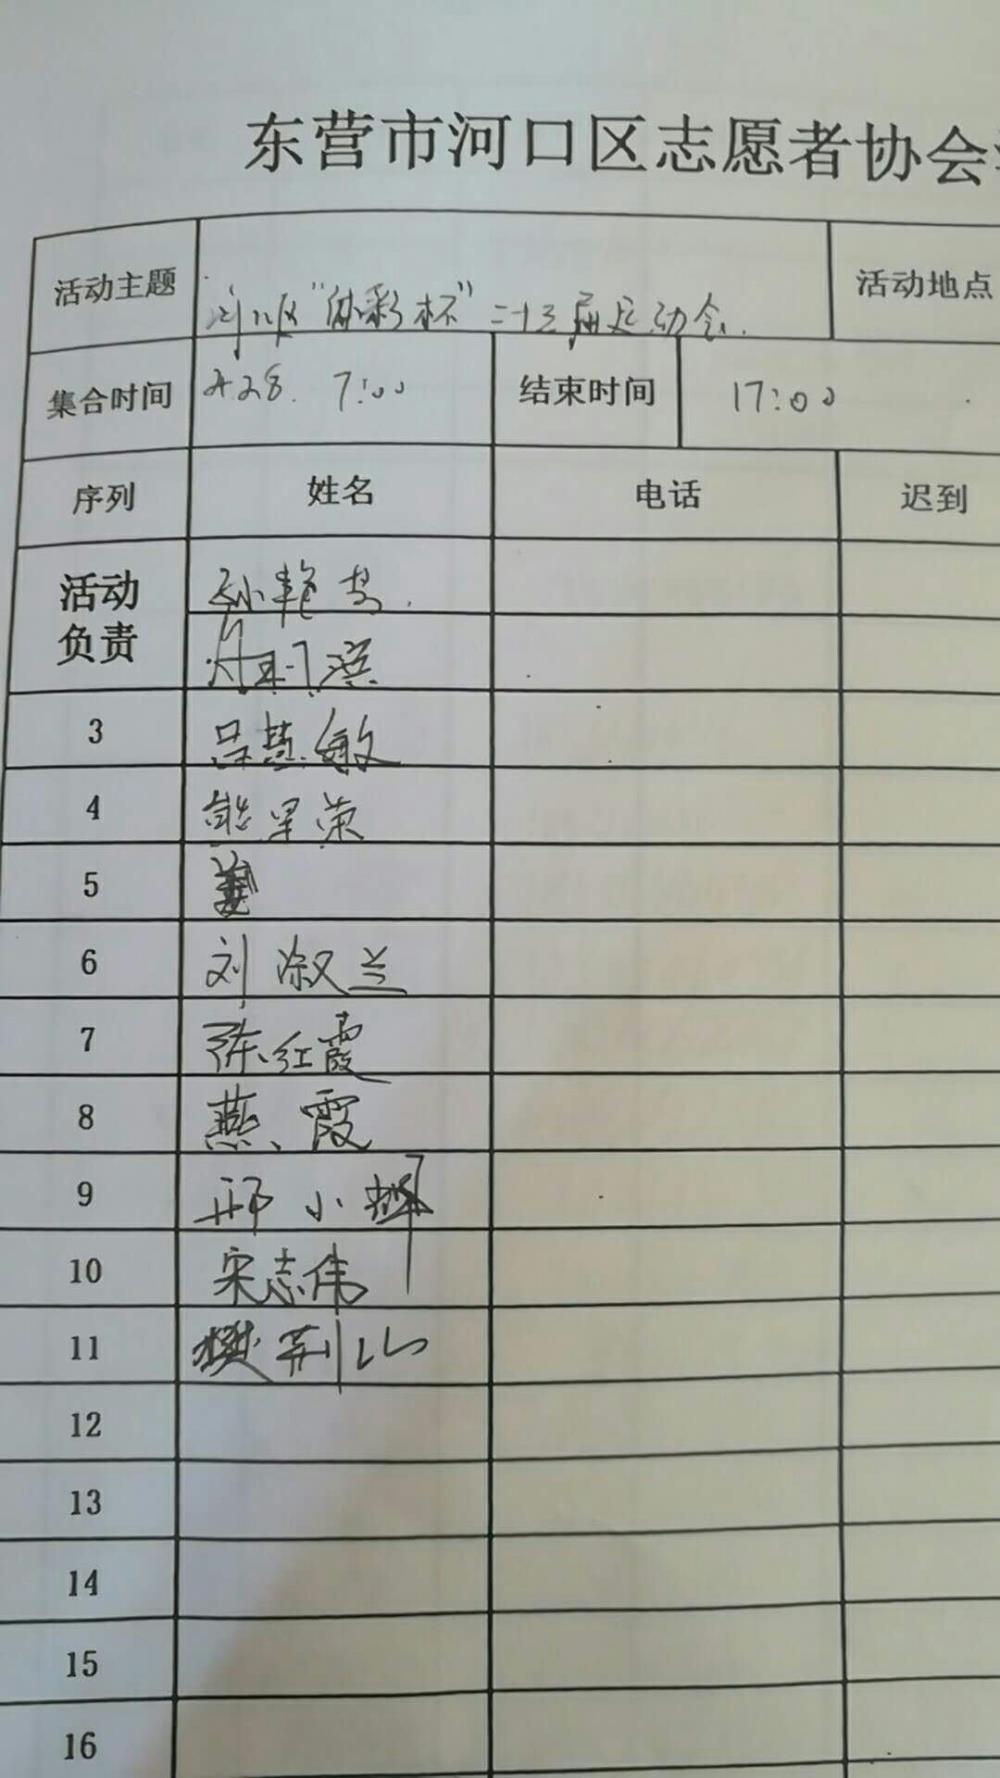 东营市河口区志愿者协会
活动主题 河口区"体彩杯"二十三届运动会 活动地点
集合时间 4.28. 7:00 结束时间 17:00
序列 姓名 电话 迟到
活动负责 孙艳
3 吕慧敏
4 熊星荣
5
6 刘淑兰
7 张红霞
8 燕霞
9 邢小
10 宋志伟
11 樊荆山
12
13
14
15
16